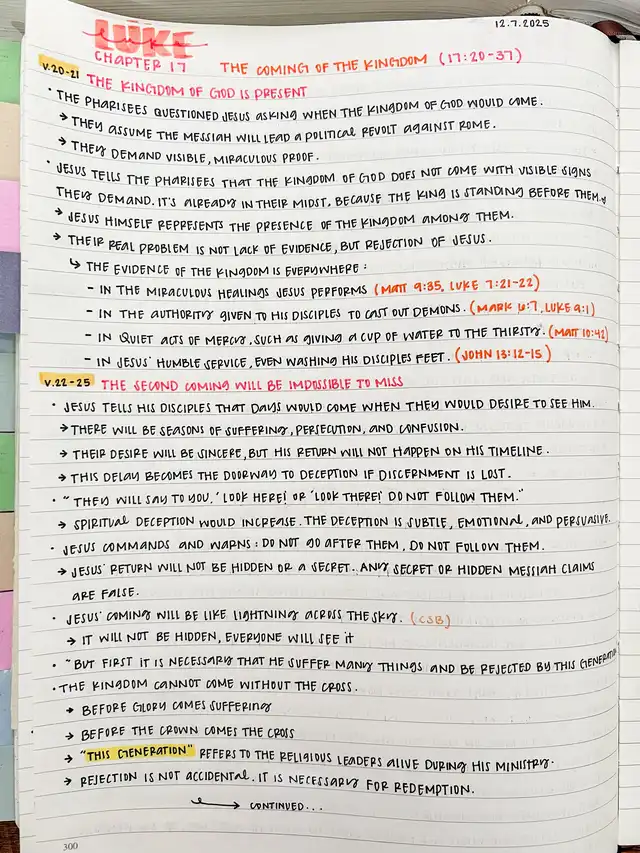 12.7.2025
LUKE
CHAPTER 17 THE COMING OF THE KINGDOM (17:20-37)
V.20-21 THE KINGDOM OF GOD IS PRESENT
• THE PHARISEES QUESTIONED JESUS ASKING WHEN THE KINGDOM OF GOD WOULD COME.
→ THEY ASSUME THE MESSIAH WILL LEAD A POLITICAL REVOLT AGAINST ROME.
→ THEY DEMAND VISIBLE, MIRACULOUS PROOF.
• JESUS TELLS THE PHARISEES THAT THE KINGDOM OF GOD DOES NOT COME WITH VISIBLE SIGNS
THEY DEMAND. IT'S ALREADY IN THEIR MIDST, BECAUSE THE KING IS STANDING BEFORE THEM.
→ JESUS HIMSELF REPRESENTS THE PRESENCE OF THE KINGDOM AMONG THEM.
→ THEIR REAL PROBLEM IS NOT LACK OF EVIDENCE, BUT REJECTION OF JESUS.
↳ THE EVIDENCE OF THE KINGDOM IS EVERYWHERE:
- IN THE MIRACULOUS HEALINGS JESUS PERFORMS (MATT 9:35, LUKE 7:21-22)
- IN THE AUTHORITY GIVEN TO HIS DISCIPLES TO CAST OUT DEMONS. (MARK 6:7, LUKE 9:1)
- IN QUIET ACTS OF MERCY, SUCH AS GIVING A CUP OF WATER TO THE THIRSTY. (MATT 10:42)
- IN JESUS' HUMBLE SERVICE, EVEN WASHING HIS DISCIPLES FEET. (JOHN 13:12-15)
V.22-25 THE SECOND COMING WILL BE IMPOSSIBLE TO MISS
• JESUS TELLS HIS DISCIPLES THAT DAYS WOULD COME WHEN THEY WOULD DESIRE TO SEE HIM.
→ THERE WILL BE SEASONS OF SUFFERING, PERSECUTION, AND CONFUSION.
→ THEIR DESIRE WILL BE SINCERE, BUT HIS RETURN WILL NOT HAPPEN ON HIS TIMELINE.
→ THIS DELAY BECOMES THE DOORWAY TO DECEPTION IF DISCERNMENT IS LOST.
• "THEY WILL SAY TO YOU, 'LOOK HERE!' OR 'LOOK THERE!' DO NOT FOLLOW THEM."
→ SPIRITUAL DECEPTION WOULD INCREASE. THE DECEPTION IS SUBTLE, EMOTIONAL, AND PERSUASIVE.
• JESUS COMMANDS AND WARNS: DO NOT GO AFTER THEM, DO NOT FOLLOW THEM.
→ JESUS' RETURN WILL NOT BE HIDDEN OR A SECRET. ANY SECRET OR HIDDEN MESSIAH CLAIMS
ARE FALSE.
• JESUS' COMING WILL BE LIKE LIGHTNING ACROSS THE SKY. (CSB)
→ IT WILL NOT BE HIDDEN, EVERYONE WILL SEE IT
• "BUT FIRST IT IS NECESSARY THAT HE SUFFER MANY THINGS AND BE REJECTED BY THIS GENERATION
• THE KINGDOM CANNOT COME WITHOUT THE CROSS.
→ BEFORE GLORY COMES SUFFERING
→ BEFORE THE CROWN COMES THE CROSS
→ "THIS GENERATION" REFERS TO THE RELIGIOUS LEADERS ALIVE DURING HIS MINISTRY.
→ REJECTION IS NOT ACCIDENTAL. IT IS NECESSARY FOR REDEMPTION.
→ CONTINUED...
300